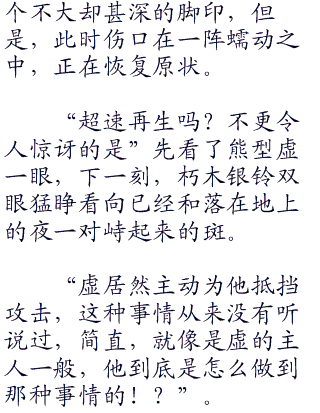 个不大却甚深的脚印，但
是，此时伤口在一阵蠕动之
中，正在恢复原状。
“超速再生吗？不更令
人惊讶的是”先看了熊型虚
一眼，下一刻，朽木银铃双
眼猛睁看向已经和落在地上
的夜一对峙起来的斑。
“虚居然主动为他抵挡
攻击，这种事情从来没有听
说过，简直，就像是虚的主
人一般，他到底是怎么做到
那种事情的！？”。